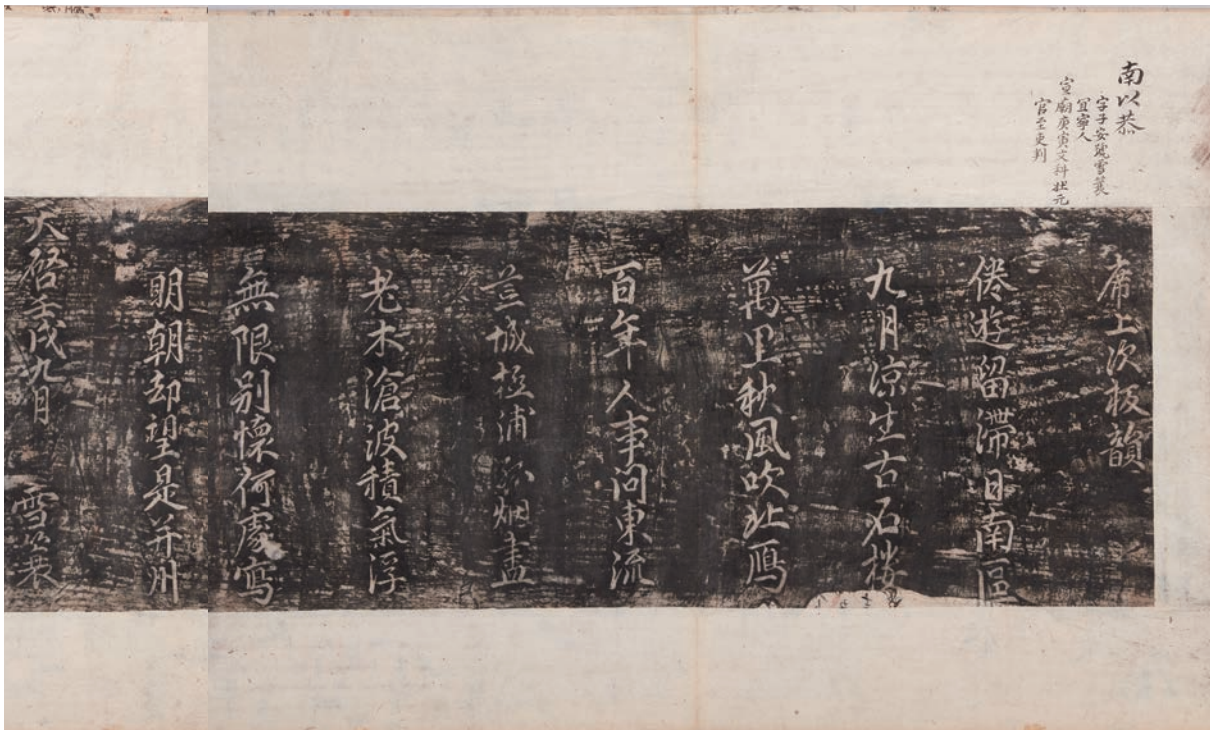 南以恭
字子安號雪蓑
宜寧人
宣廟庚寅文科壯元
官至吏判
席上次板韻
倦遊留滯日南區
九月涼生古石樓
萬里秋風吹北鴈
百年人事問東流
荒城極浦孤烟盡
老木滄波積氣浮
無限別懷何處寫
明朝却望是并州
天啓壬戌九月 雪蓑